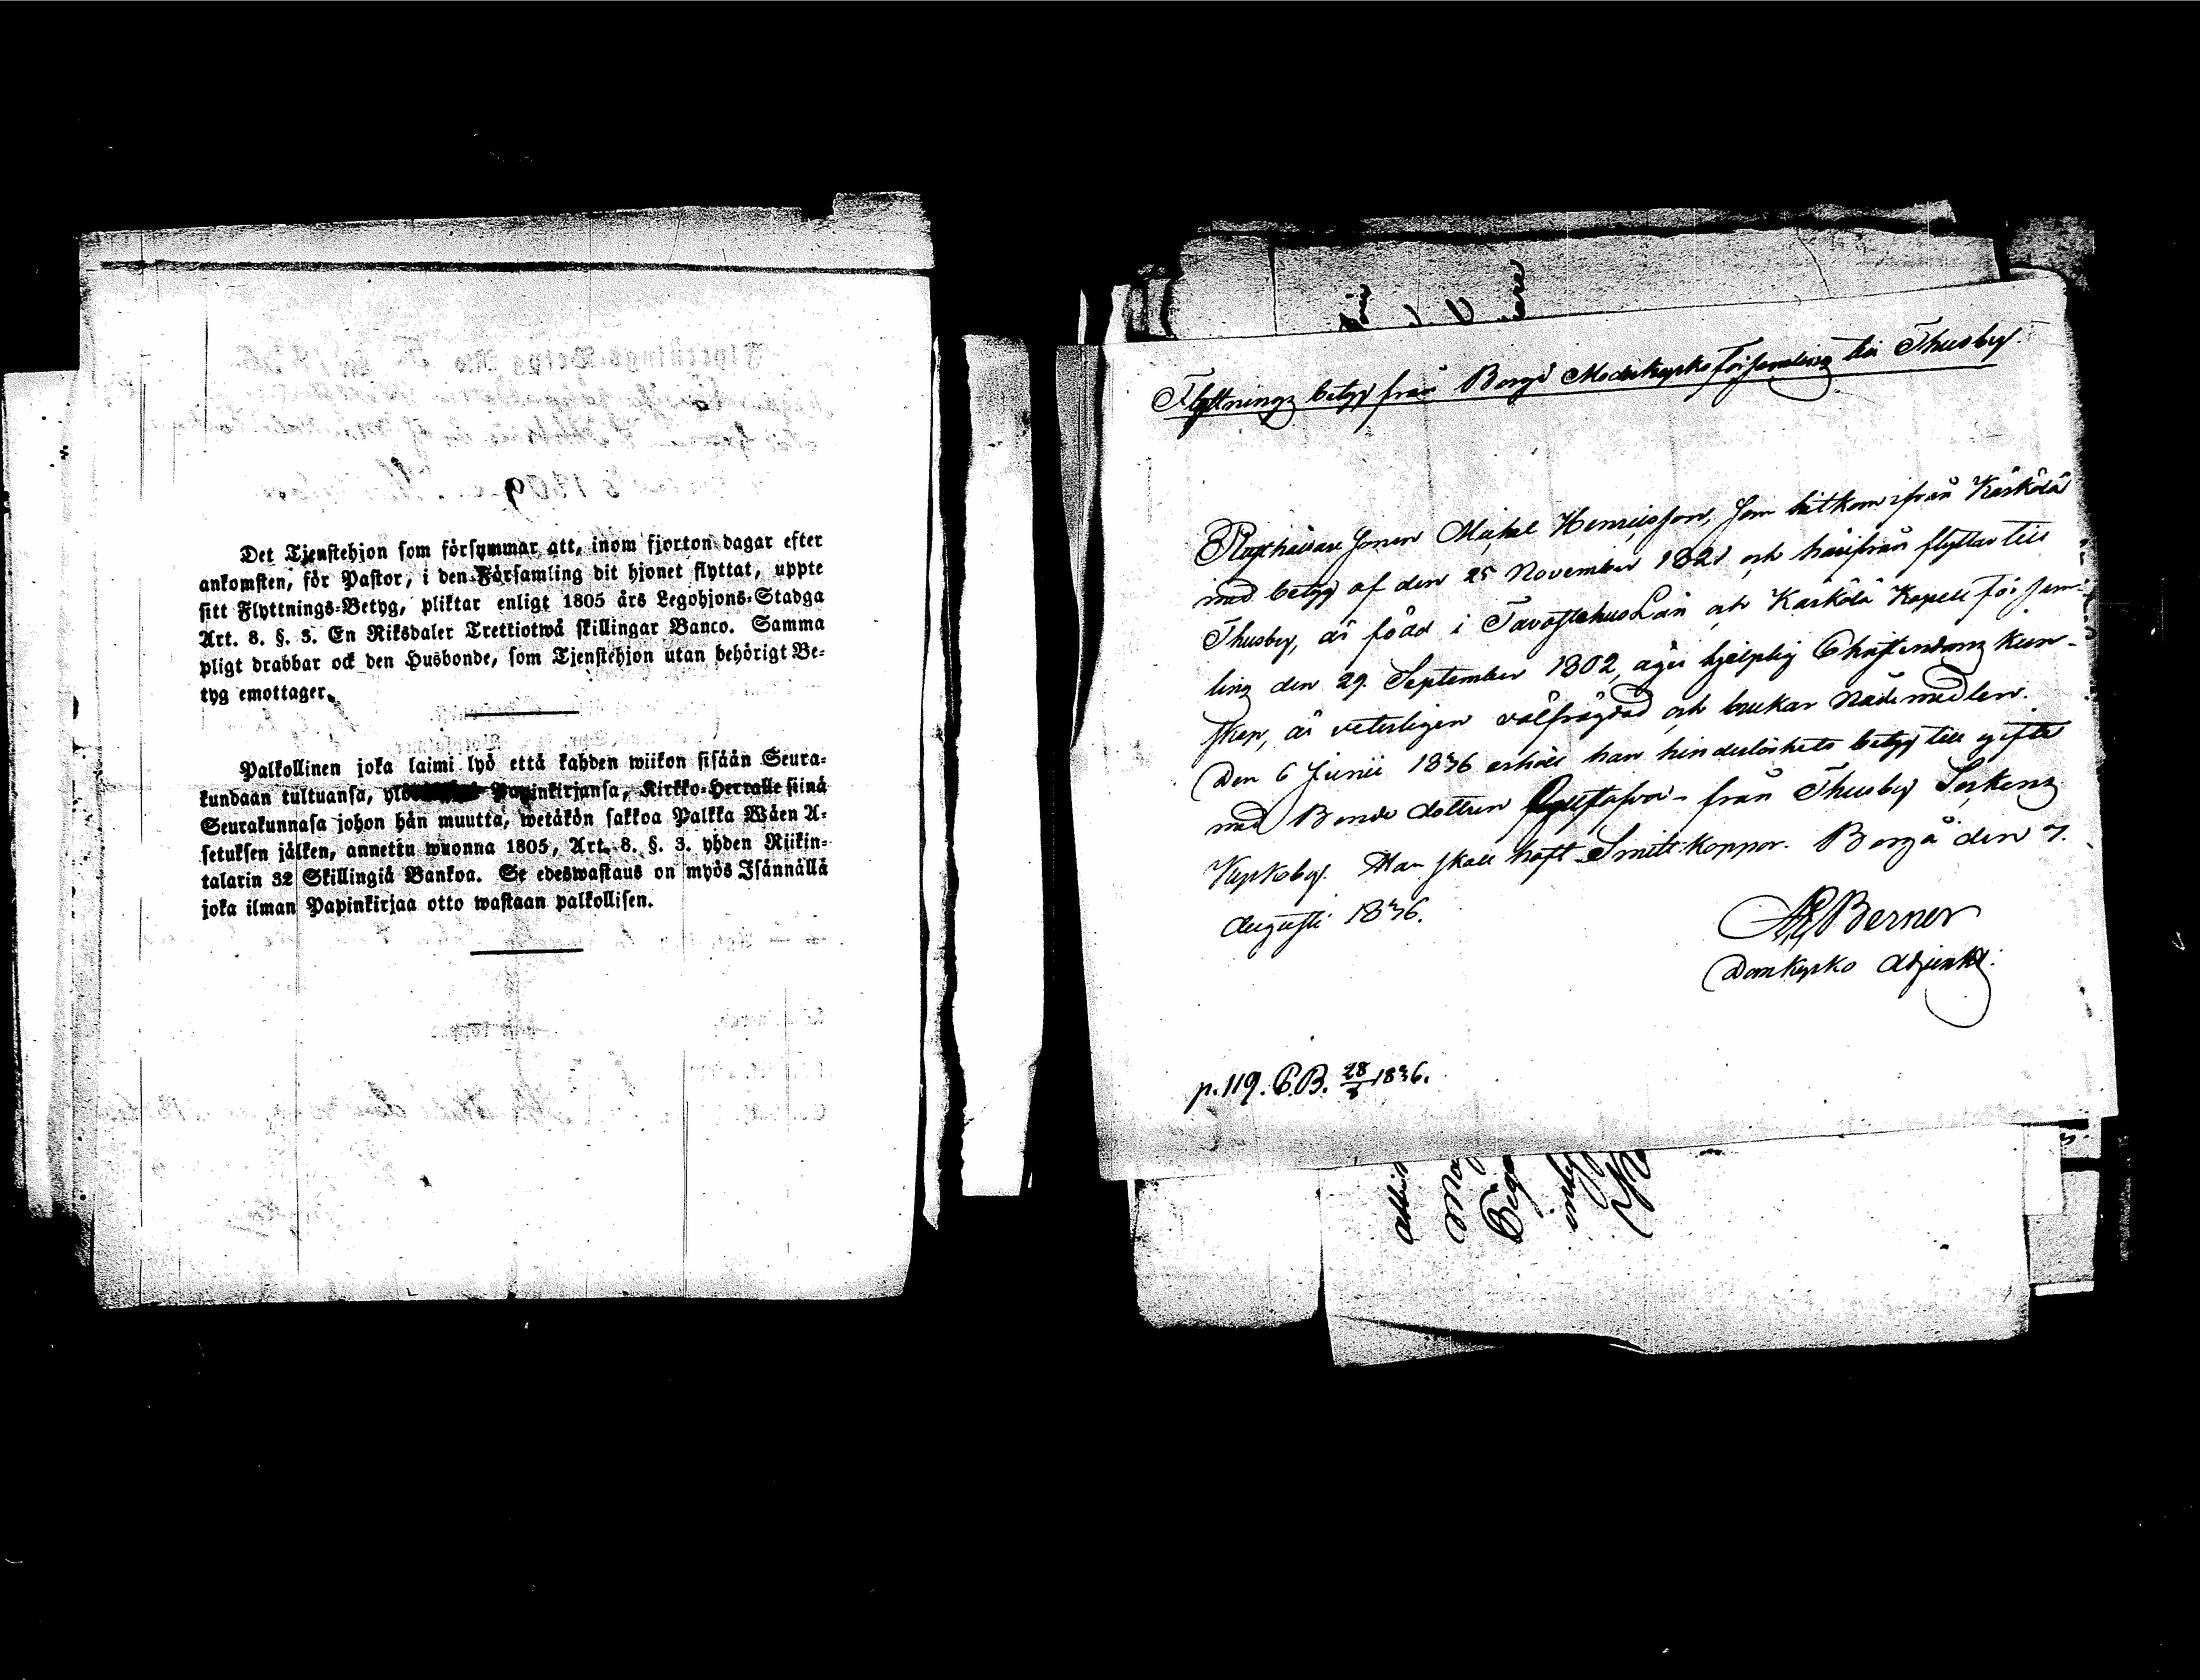 Det Tjenstehjon som försummar att, inom fjorton dagar efter
ankomsten, för Pastor, i den Församling dit hjonet flyttat, uppte
sitt Flyttnings-Betyg, pliktar enligt 1805 års Legohjons-Stadga
Art. 8. §. 3. En Riksdaler Trettiotwå skillingar Banco. Samma
pligt drabbar ock den Husbonde, som Tjenstehjon utan behörigt Be-
tyg emottager.
Palkollinen joka laimi lyö että kahden wiikon sisään Seura-
kundaan tultuansa, Papinkirjansa, Kirkko-Herralle siinä
Seurakunnasa johon hän muutta, wetäkön sakkoa Palkka Wäen A-
setuksen jälken, annettu wuonna 1805, Art. 8. §. 3. yhden Riikin-
talarin 32 Skillingiä Bankoa. Se edeswastaus on myös Isännällä
joka ilman Papinkirjaa otto wastaan palkollisen.
Flyttnings betyg från Borgå Moderkyrko församling till Thusby.
Mickel Henricsson, som hitkom ifrån Kärkölä
med betyg af den 25 November 1821 och härifrån flyttar till
Thusby, är född i Tavastehus Län och Kärkölä Kapell försam-
ling den 29. September 1802, äger hjelplig Christendoms kun-
skap, är veterligen välfrägdad och brukar Nådemedlen.
Den 6 Junii 1836 erhöll han hinderlöshets betyg till gifte
med Bonde dottren från Thusby
Kyrkoby. Han skall haft Smitt-koppor. Borgå den 7.
Augusti 1836.
Berner
Domkyrko Adjunkt.
p. 119. C.B. 28/8 1836.